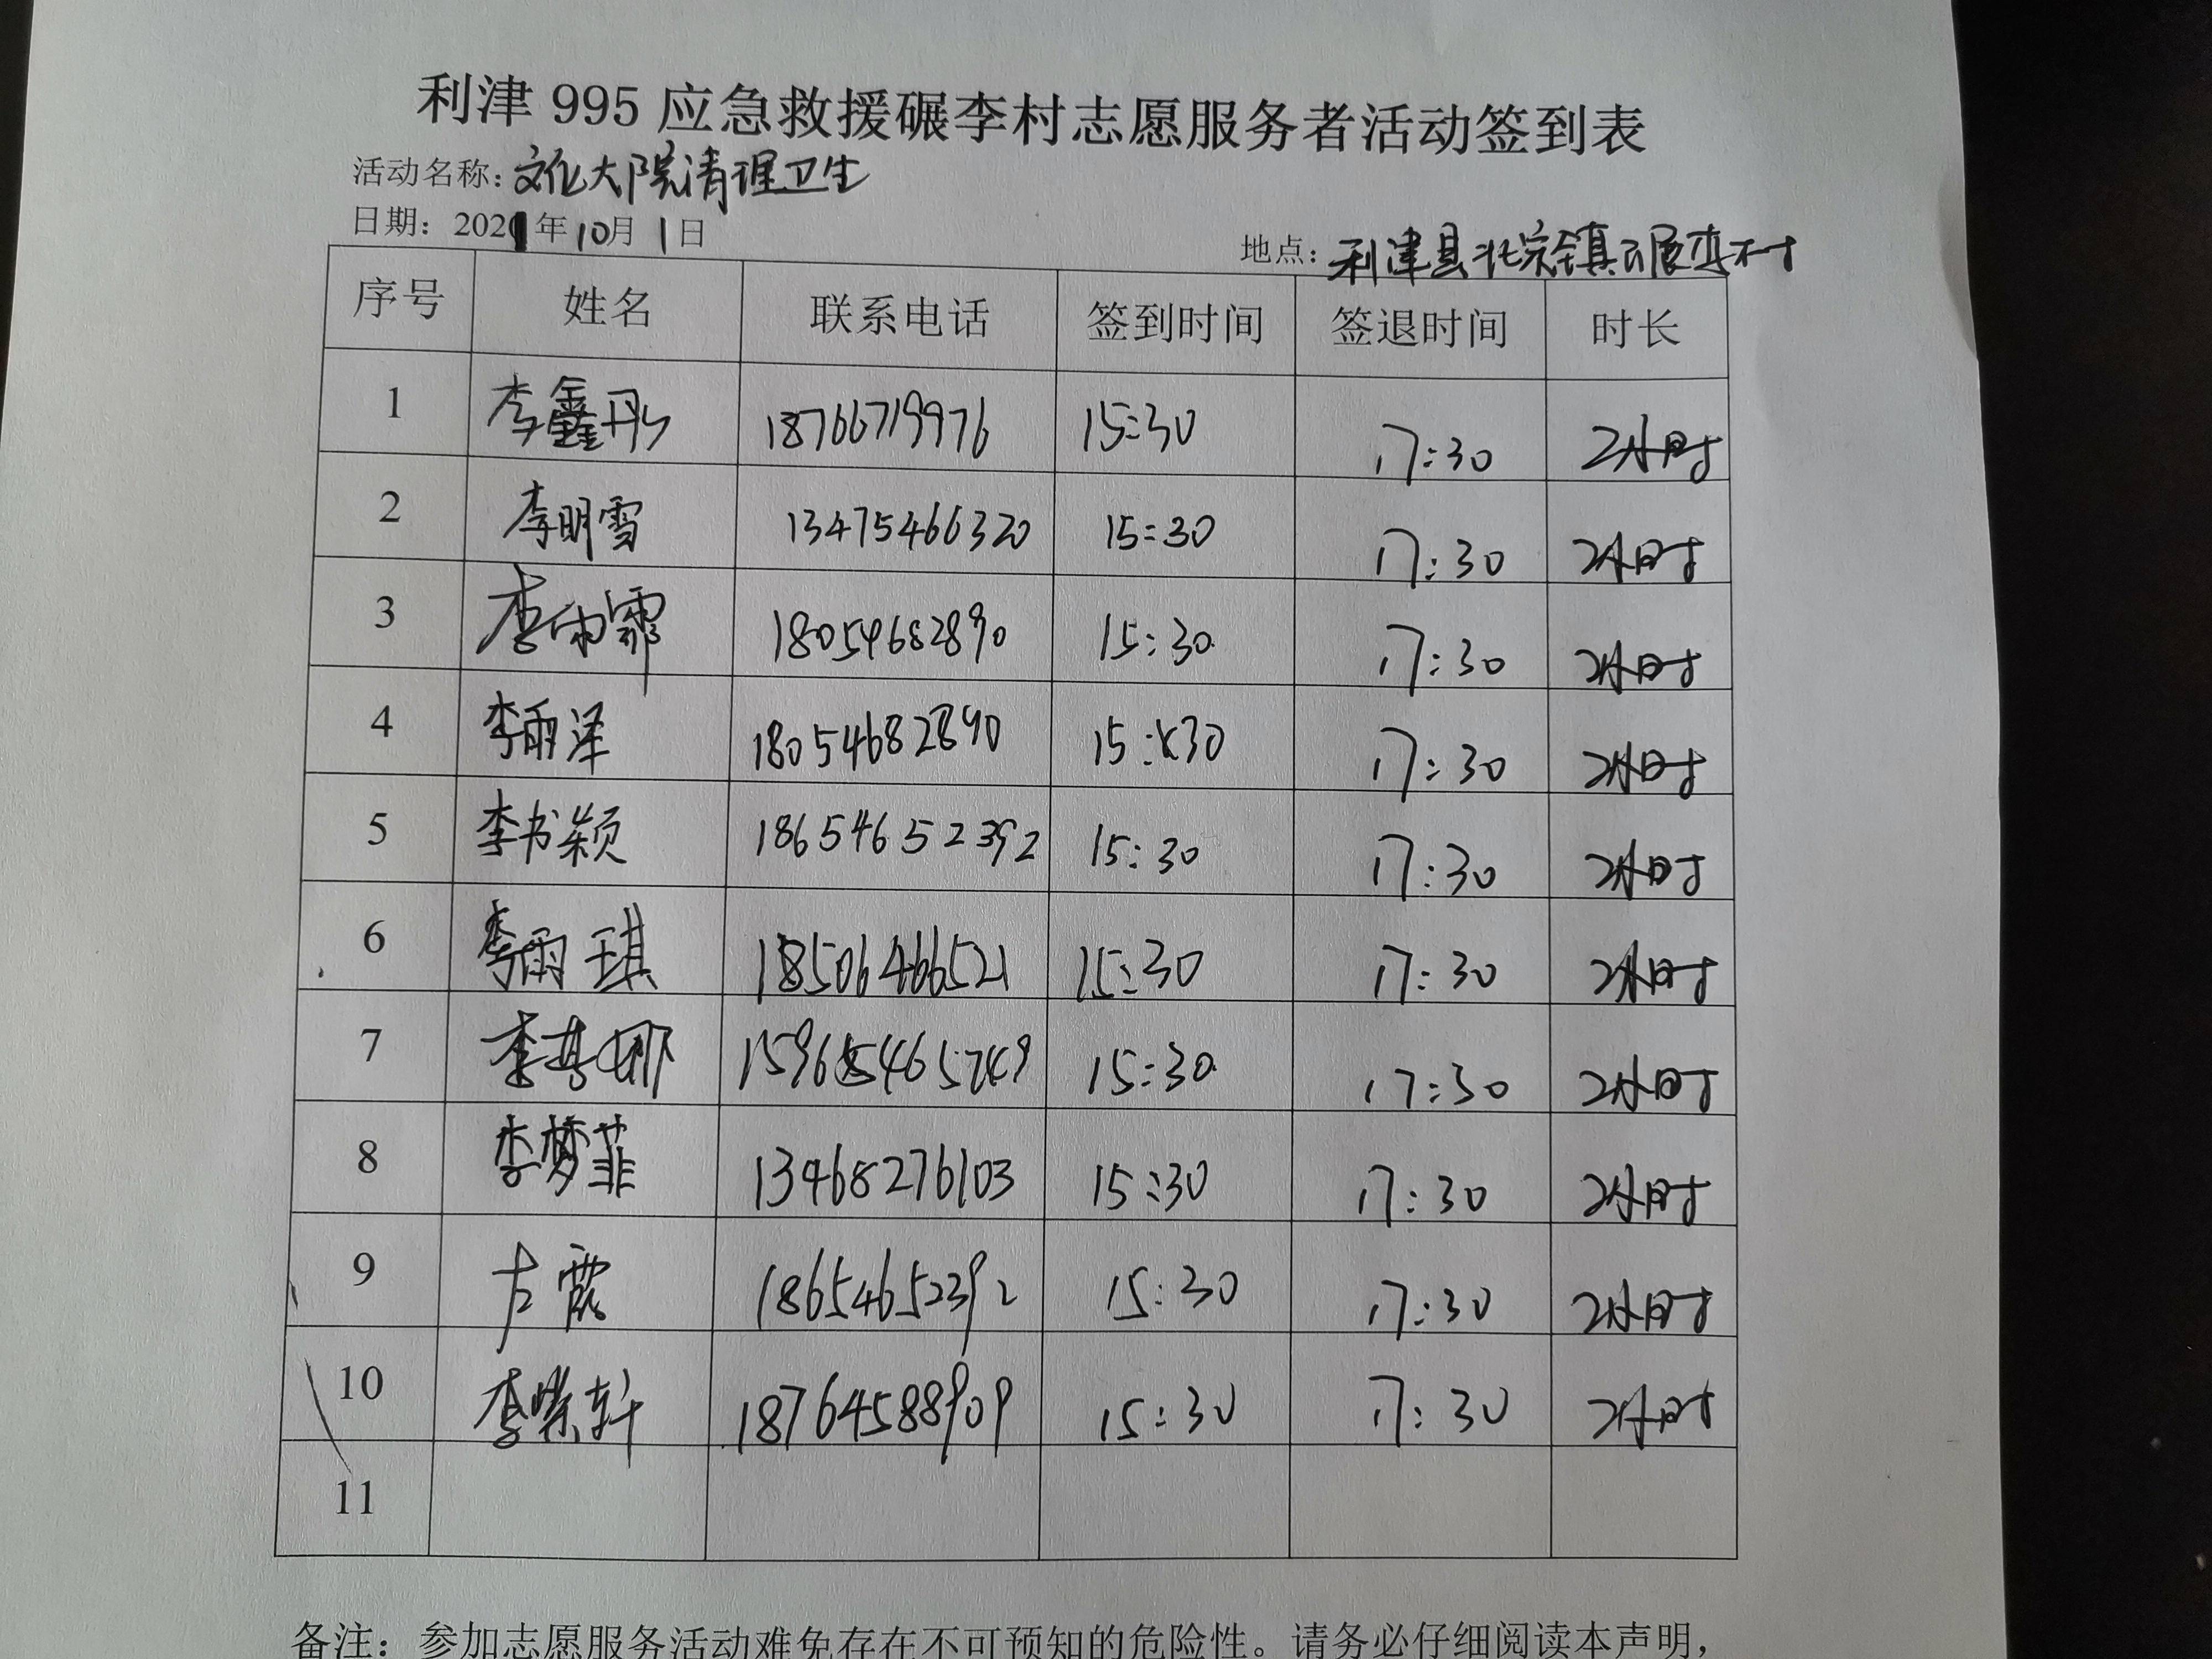 利津 995 应急救援碾李村志愿服务者活动签到表
活动名称：文化大院清理卫生
日期：2021年10月1日
地点：利津县北宋镇碾李村
序号 姓名 联系电话 签到时间 签退时间 时长
1 李鑫彤 18766719976 15:30 17:30 2小时
2 李明雪 13475466320 15:30 17:30 2小时
3 李雨霏 18054682890 15:30 17:30 2小时
4 李雨泽 18054682890 15:30 17:30 2小时
5 李书颖 18654652392 15:30 17:30 2小时
6 李雨琪 18506466521 15:30 17:30 2小时
7 李娜 15:30 17:30 2小时
8 李梦菲 13468276103 15:30 17:30 2小时
9 左霞 18654652392 15:30 17:30 2小时
10 李紫轩 18764588909 15:30 17:30 2小时
11
备注：参加志愿服务活动难免存在不可预知的危险性。请务必仔细阅读本声明，